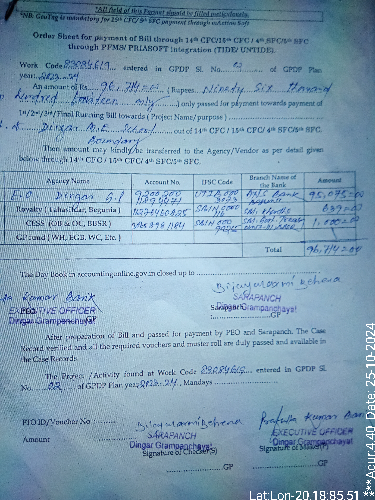 *All field of this Format should be filled mandatorily.
*NB. GeoTag is mandatory for 15th CFC/ 5th SFC payment through eutation Soft
Order Sheet for payment of Bill through 14th CFC/15th CFC/ 4th SFC/5th SFC
through PFMS/ PRIASOFT integration (TIDE/ UNTIDE).
Work Code 83084619 entered in GPDP Sl. No. 02 of GPDP Plan
year, 2023-24
An amount of Rs. 96,714.00 (Rupees Ninety Six Thousand
Hundred fourteen only) only passed for payment towards payment of
1st/2nd/3rd/Final Running Bill towards (Project Name/purpose)
Dingar M.E School out of 14th CFC / 15th CFC/ 4th SFC/5th SFC.
Boundary
Then amount may kindly be transferred to the Agency/Vendor as per detail given
below through 14th CFC / 15th CFC/ 4th SFC/5th SFC.
Agency Name Account No. IFSC Code Branch Name of the Bank Amount
E.O Dingar G.P Bank 95,075=00
Royalty (Tahasildar, Begunia) 639=00
CESS (OB & OC, BBSR) 1,000=00
GP fund (WH, EGB, WC, Etc.)
Total 96,714=00
The Day Book in accountingonline.gov.in closed up to
Kumar Barik
PEO
EXECUTIVE OFFICER
Dingar Grampanchayat
GP
Bijayalaxmi Behera
SARAPANCH
Sarapanch
Dingar Grampanchayat
GP
After preparation of Bill and passed for payment by PEO and Sarapanch. The Case
Record verified and all the required vouchers and muster roll are duly passed and available in
the Case Records.
The Project /Activity found at Work Code 83084619 entered in GPDP Sl.
No. 02 of GPDP Plan year, 2023-24, Mandays
PIO ID/Voucher No
Amount
Bijayalaxmi Behera
SARAPANCH
Dingar Grampanchayat
Signature of Checker(S)
GP
Prafulla Kumar Barik
EXECUTIVE OFFICER
Dingar Grampanchayat
Signature of Maker(P)
GP
Lat:Lon-20.18:85.51 ***Acur:4.40 Date, 25-10-2024